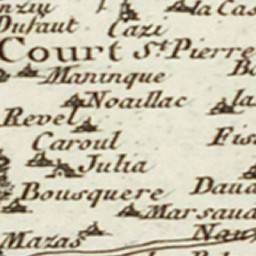 Dufaut Cazi
Court St. Pierre
Maninque
Noaillac la
Revel
Caroul
Julia
Bousquere
Marsaud
Mazas